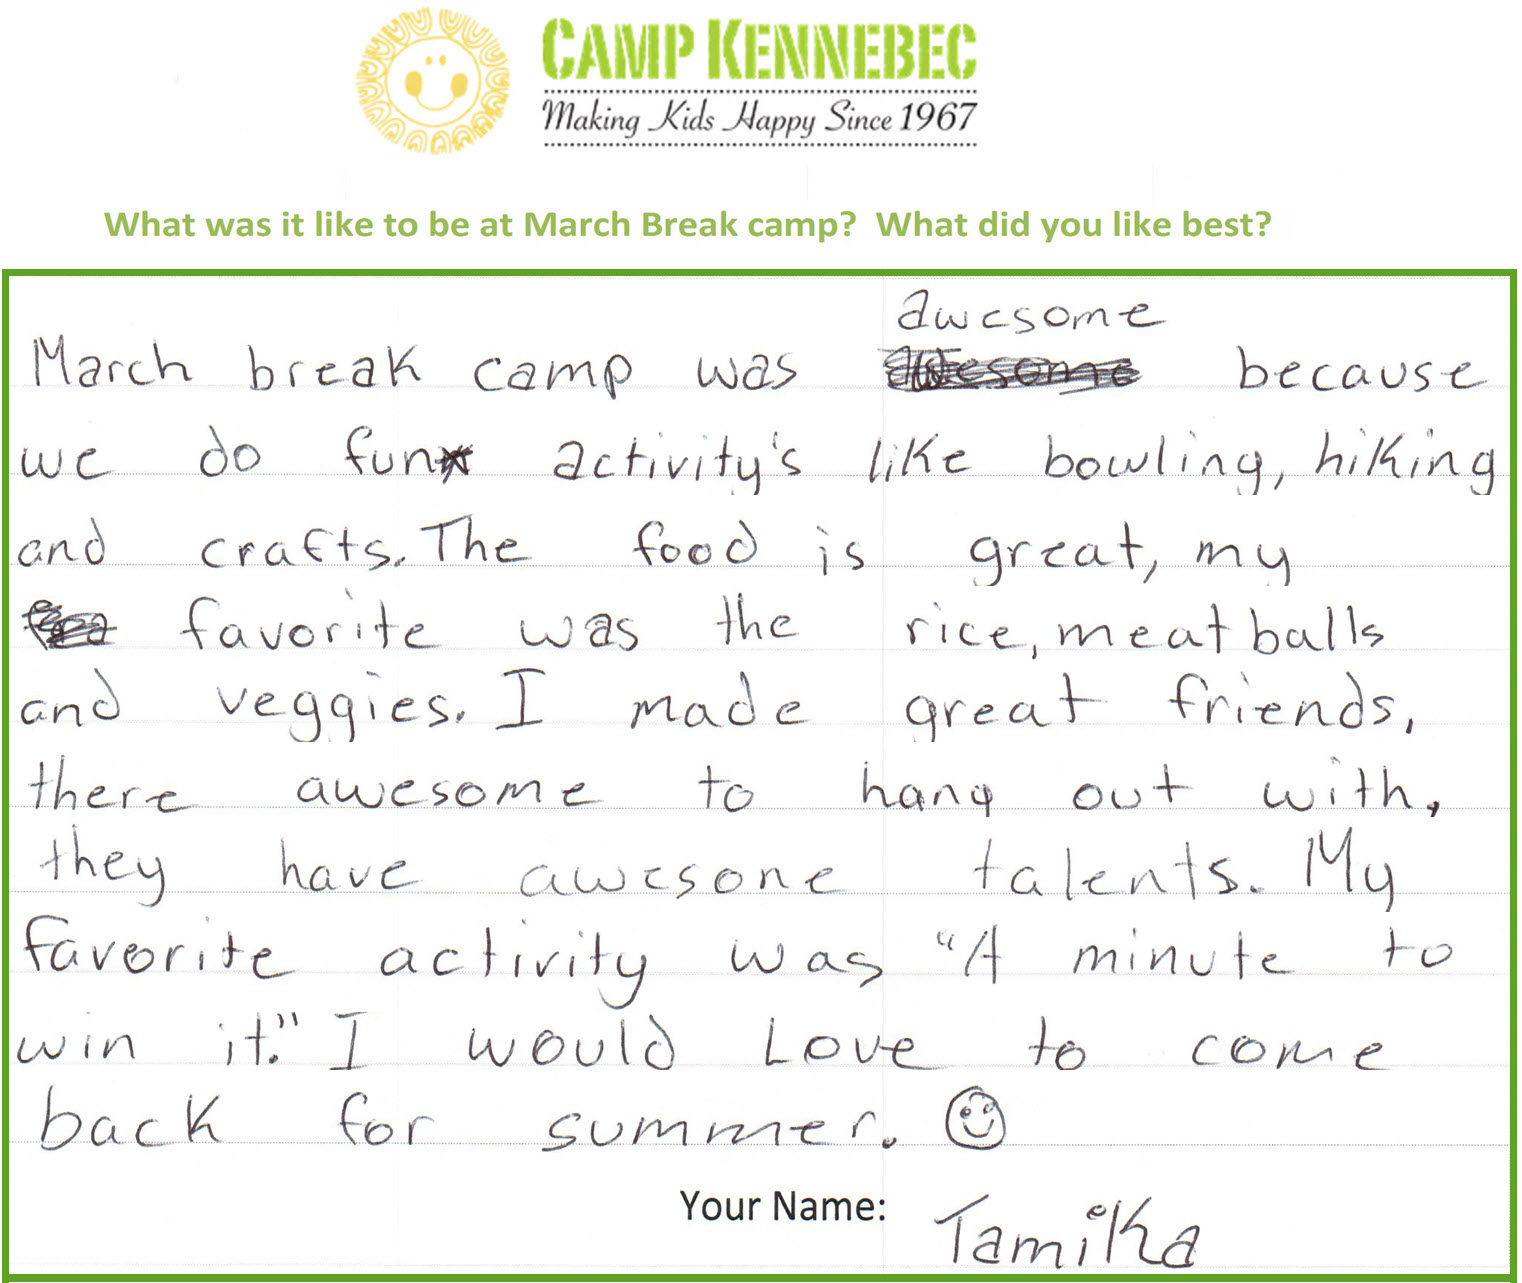 CAMP KENNEBEC
Making Kids Happy Since 1967
What was it like to be at March Break camp? What did you like best?
awesome
March break camp was awesome because
we do fun activity's like bowling, hiking
and crafts. The food is great, my
favorite was the rice, meatballs
and veggies. I made great friends,
there awesome to hang out with,
they have awesone talents. My
favorite activity was "A minute to
win it." I would Love to come
back for summer. ☺
Your Name: Tamika